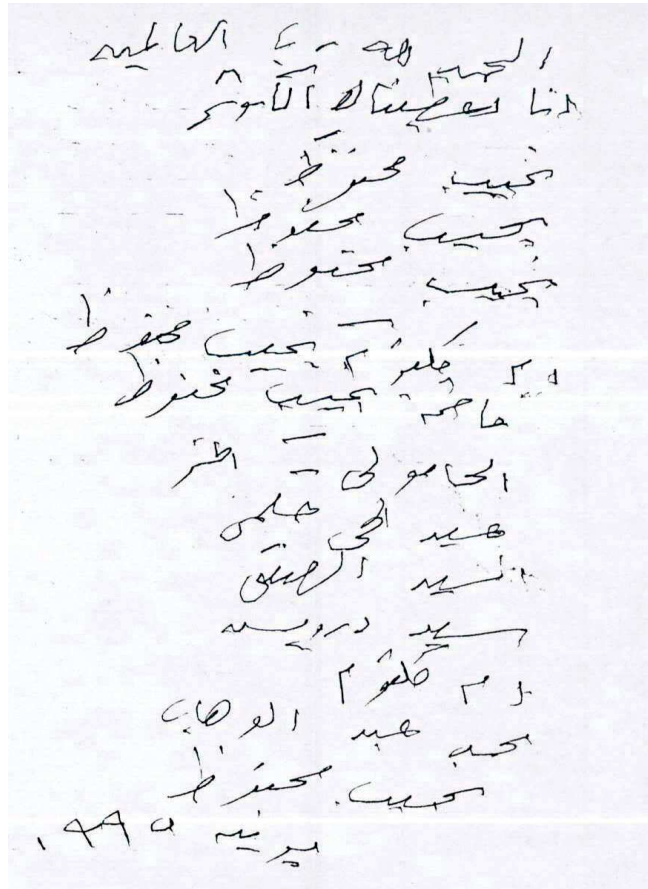 الحمد لله رب العالمين
انا اعطيناك الكوثر
نجيب محفوظ
نجيب محفوظ
نجيب محفوظ
ام كلثوم – نجيب محفوظ
فاطمة نجيب محفوظ
الحامولى –
عبد الحى حلمى
السيد الصفتى
سيد درويش
ام كلثوم
محمد عبد الوهاب
نجيب محفوظ
يونيه ١٩٩٥